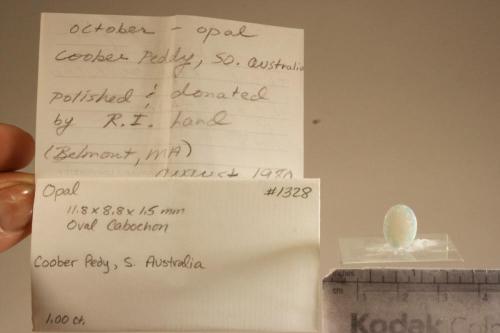 October - opal
Coober Peddy, So. Australia
polished & donated
by R.I. Land
(Belmont, MA)
August
Opal #1328
11.8 x 8.8 x 1.5 mm
Oval Cabochon
Coober Pedy, S. Australia
1.00 ct.
inches 1
cm 1 2 3 4
Kodak